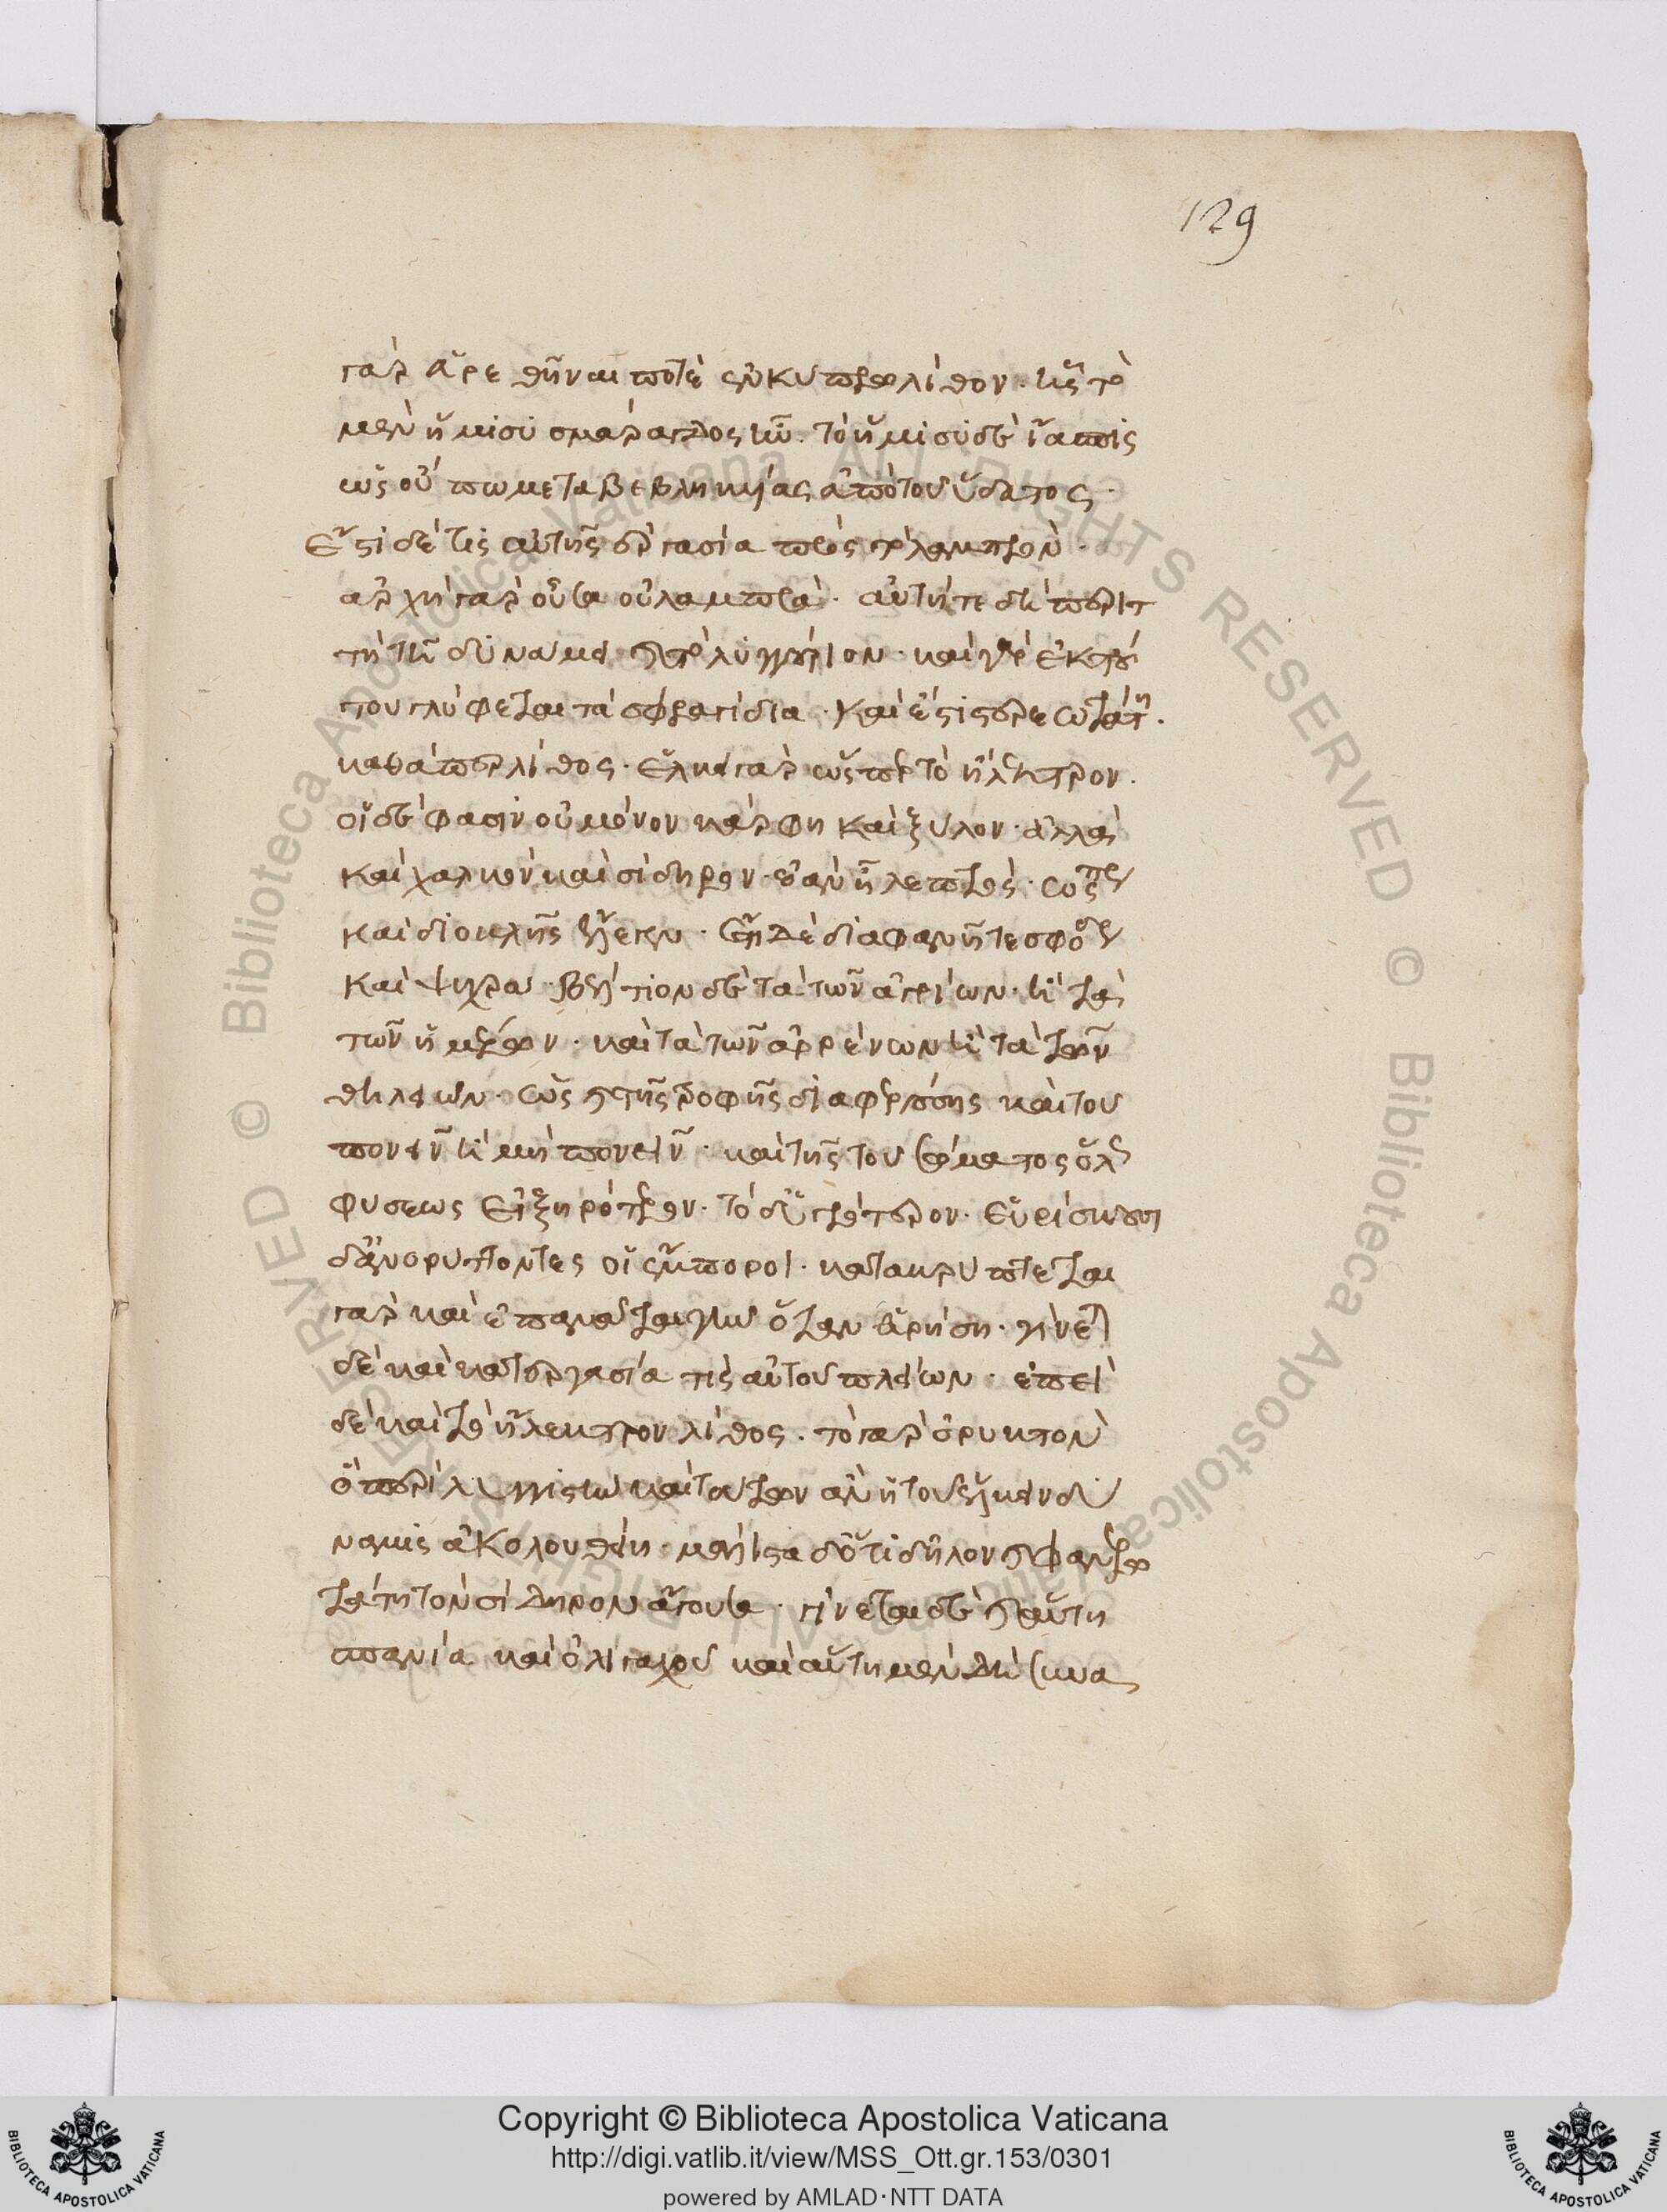 129
γὰρ εὑρεθῆναι ποτὲ ἐν κύπρω λίθον. ἧς τὸ
μὲν ἥμισυ σμάραγδος ἦν. τὸ ἥμισυ δὲ ἴασπις
ὡς οὔπω μεταβεβληκυίας ἀπὸ τοῦ ὕδατος.
Ἔστι δέ τις αὐτῆς ἐργασία πρὸς τὸ λαμπρόν.
ἀρχὴ γὰρ οὖσα οὐ λαμπρά. αὐτή τε δὴ περιτ
τὴ τῆ δυνάμει καὶ τὸ λυγγύριον. καὶ γὰρ ἐκ τού
του γλύφεται τὰ σφραγίδια. καὶ ἔστι στερεωτάτη.
καθάπερ λίθος. ἕλκει γὰρ ὥσπερ τὸ ἤλεκτρον.
οἱ δέ φασιν οὐ μόνον κάρφη καὶ ξύλον. ἀλλὰ
καὶ χαλκὸν καὶ σίδηρον. ἐὰν ἦ λεπτός. ὥσπερ
καὶ διοκλῆς ἔλεγεν. ἔστι δὲ διαφανῆ τε σφόδρα
καὶ ψυχρά. βελτίον δὲ τὰ τῶν ἀγρίων. ἢ τὰ
τῶν ἡμέρων. καὶ τὰ τῶν ἀρρένων ἢ τὰ τῶν
θηλειῶν. ὡς καὶ τῆς τροφῆς διαφερούσης καὶ τοῦ
πονεῖν ἢ μὴ πονεῖν. καὶ τῆς τοῦ σώματος ὅλως
φύσεως εἰ ξηρότερον. τὸ δ' ὑγρότερον. εὑρίσκουσι
δ' ἀνορύττοντες οἱ ἔμποροι. κατακρύπτεται
γὰρ καὶ ἐπαμᾶται γῆν ὅταν οὐρήση. γίνεται
δὲ καὶ κατεργασία τις αὐτοῦ πλείων. ἐπεὶ
δὲ καὶ τὸ ἤλεκτρον λίθος. τὸ γὰρ ὀρυκτὸν
ὃ περὶ λιγυστικὴν καὶ τούτων ἂν ἡ τοῦ ἕλκειν δύ
ναμις ἀκολουθείη. μάλιστα δ' ὅτι δῆλον καὶ φανερω
τάτη τὸν σίδηρον ἄγουσα. γίνεται δὲ καὶ αὕτη
σπανία καὶ ὀλιγαχοῦ καὶ αὕτη μὲν δὴ
Copyright © Biblioteca Apostolica Vaticana
http://digi.vatlib.it/view/MSS_Ott.gr.153/0301
powered by AMLAD·NTT DATA
BIBLIOTECA APOSTOLICA VATICANA
BIBLIOTECA APOSTOLICA VATICANA